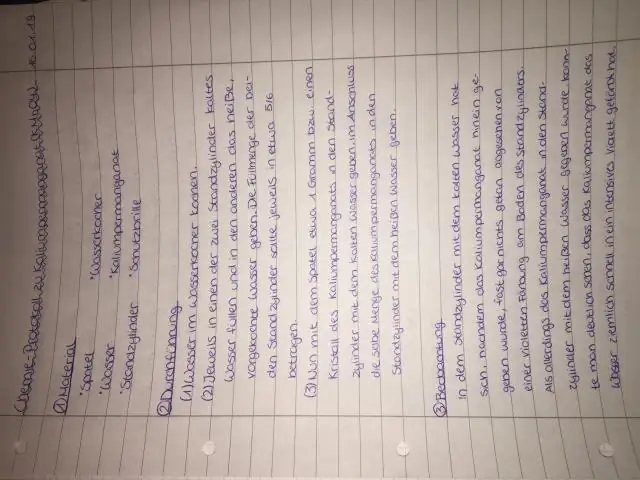 Chemie-Protokoll zu Kaliumpermanganat (KMnO4) 16.01.19
① Material
•Spatel •Wasserkocher
•Wasser •Kaliumpermanganat
•Standzylinder •Schutzbrille
② Durchführung
(1) Wasser im Wasserkocher kochen.
(2) Jeweils in einen der zwei Standzylinder kaltes
Wasser füllen und in den anderen das heiße,
vorgekochte Wasser geben. Die Füllmenge der bei-
den Standzylinder sollte jeweils in etwa 5/6
betragen.
(3) Nun mit dem Spatel etwa 1 Gramm bzw. einen
Kristall des Kaliumpermanganats in den Stand-
zylinder mit dem kalten Wasser geben. Im Anschluss
die selbe Menge des Kaliumpermanganats in den
Standzylinder mit dem heißen Wasser geben.
③ Beobachtung
In dem Standzylinder mit dem kalten Wasser hat
sich, nachdem das Kaliumpermanganat hinein ge-
geben wurde, fast gar nichts getan abgesehen von
einer violetten Färbung am Boden des Standzylinders.
Als allerdings das Kaliumpermanganat in den Stand-
zylinder mit dem heißen Wasser gegeben wurde, konn-
te man deutlich sehen, dass das Kaliumpermanganat das
Wasser ziemlich schnell in ein intensives Violett gefärbt hat.